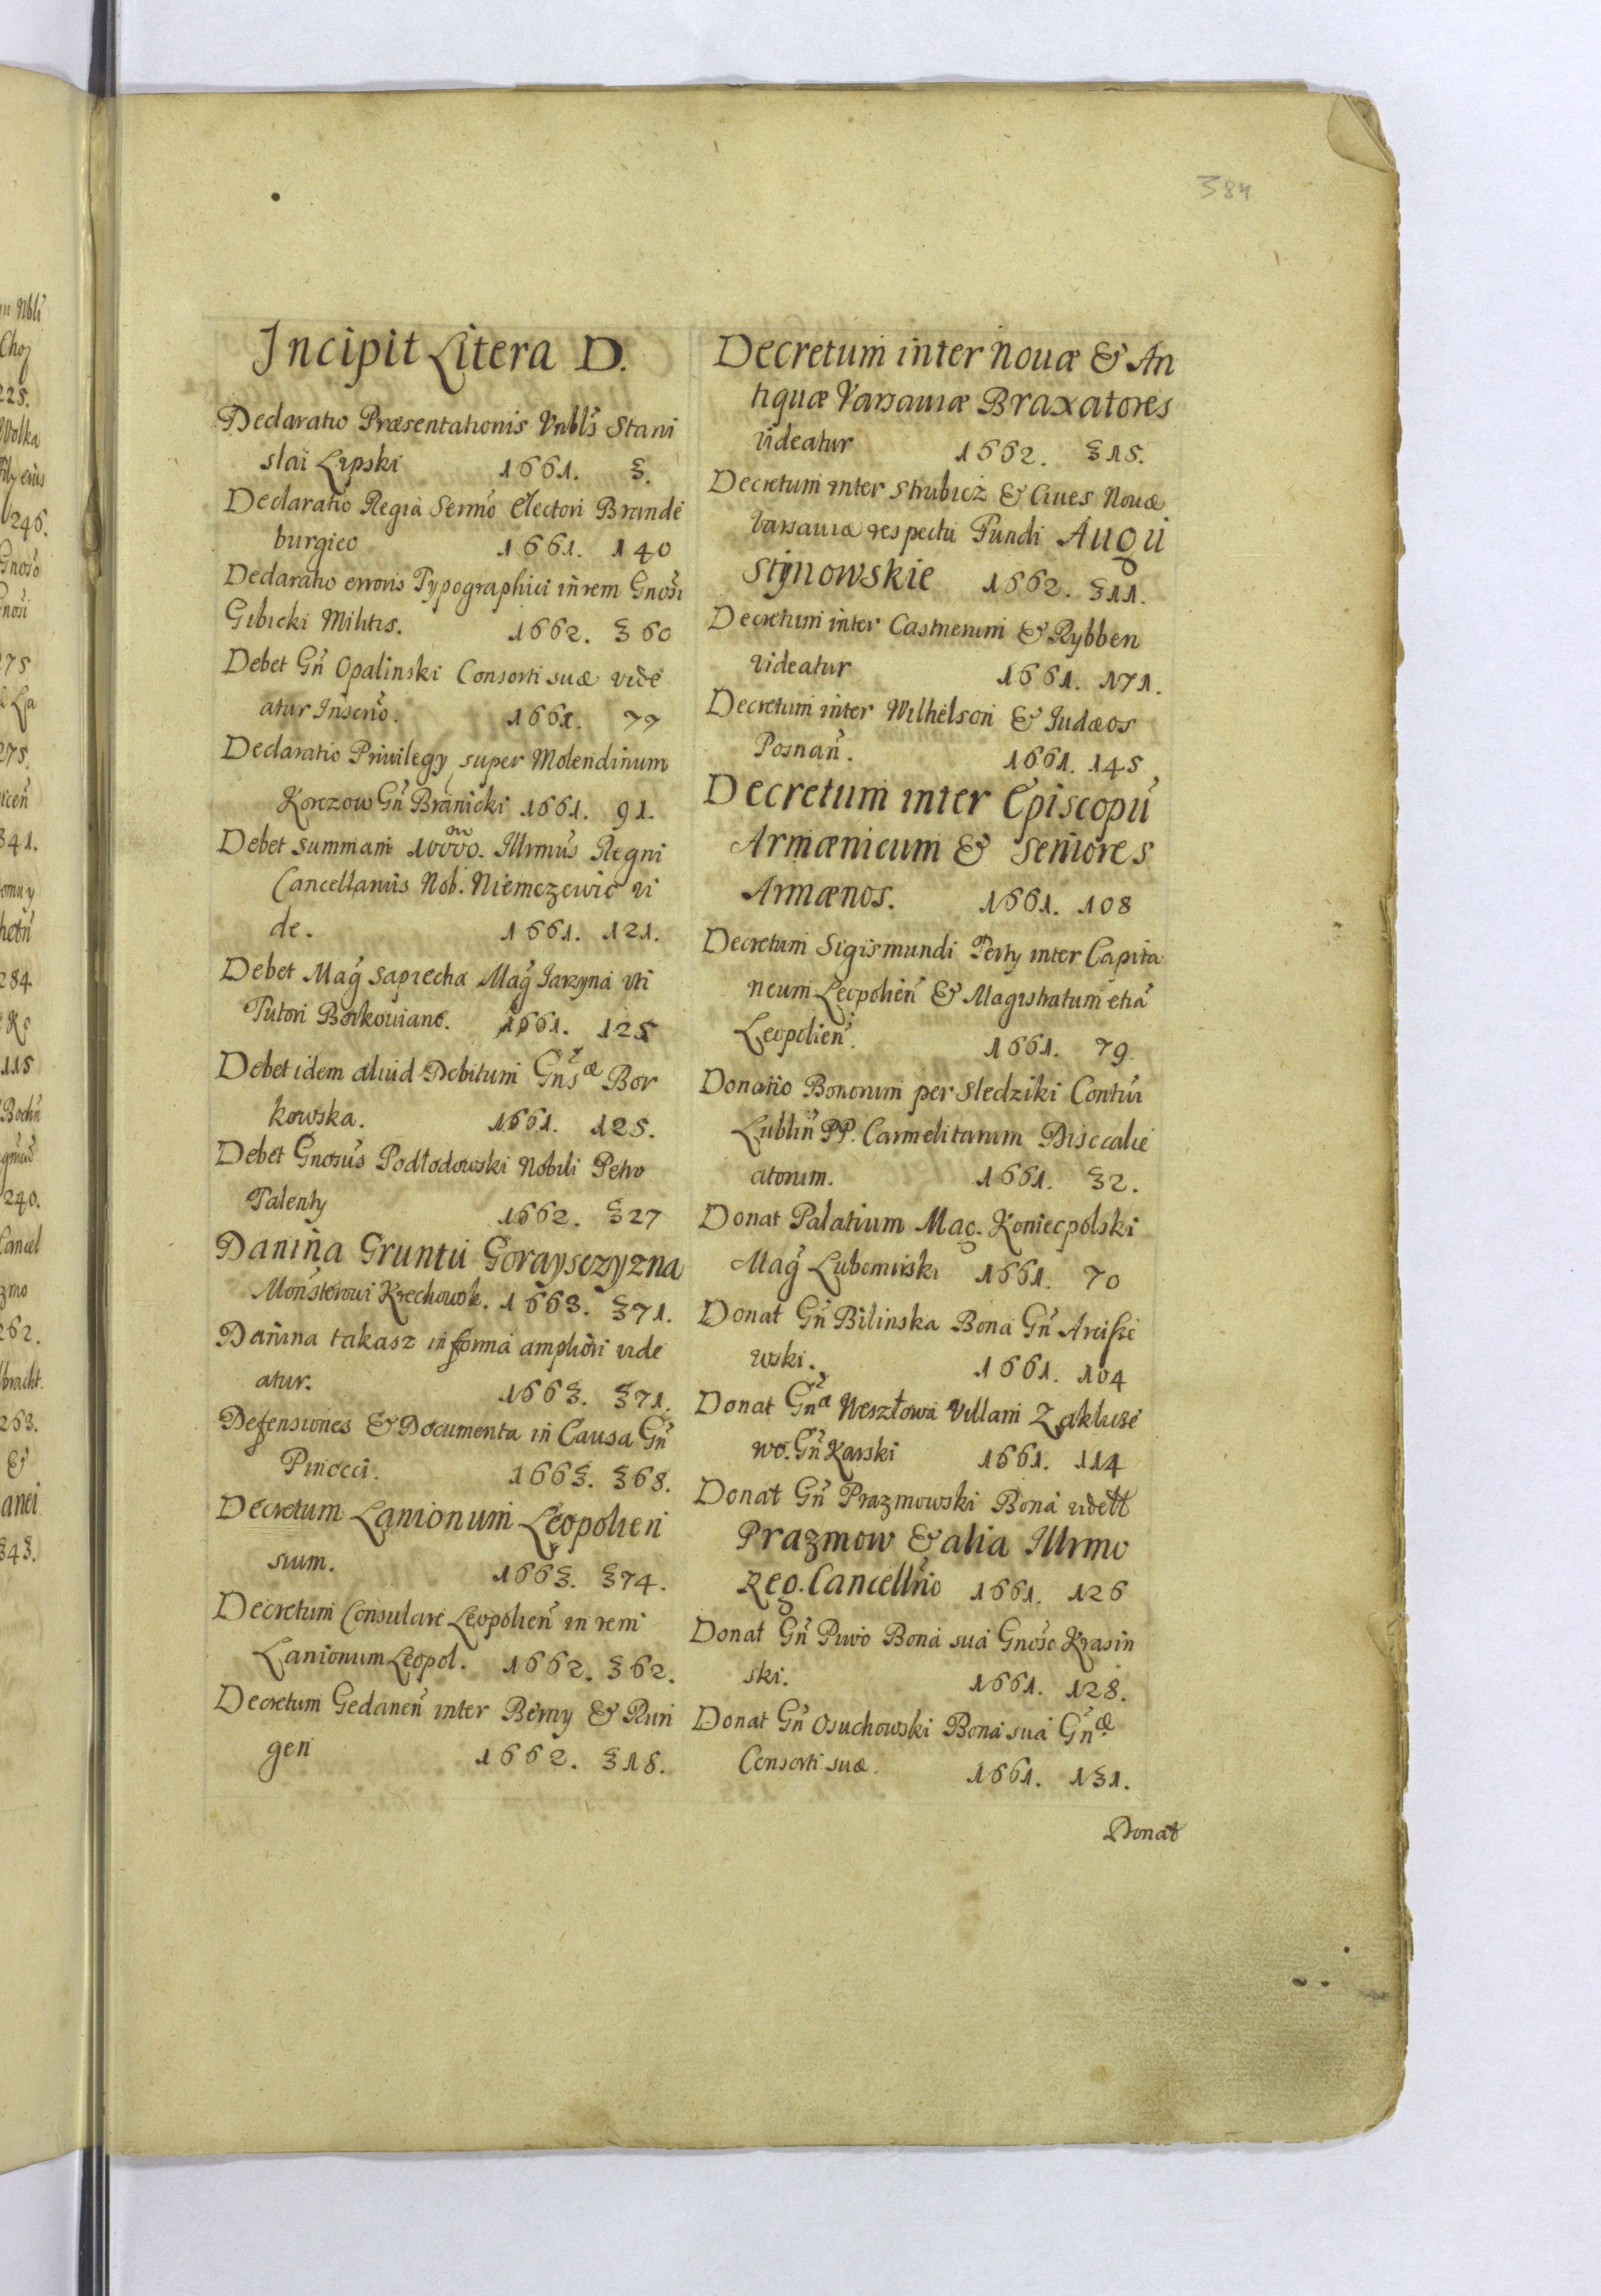 384
Incipit Litera D.
Declaratio Præsentationis Vnbl̃s Stani
slai Lipski 1661. 3.
Declaratio Regia Sermo Electori Brande
burgico 1661. 140
Declaratio erroris Typographici in rem Gnosi
Gibicki Militis. 1662. 360
Debet Gñ Opalinski Consorti suæ vide
atur Inscrio. 1661. 77
Declaratio Priuilegy super Molendinum
Korczow Gñ Branicki 1661. 91.
Debet summam 10000. Illrmus Regni
Cancellarius Nob. Niemczewic vi
de. 1661. 121.
Debet Mag̃ Sapiecha Mag̃ Jarzyna vti
Tutori Borkouiano. 1661. 125
Debet idem aliud Debitum Gnsæ Bor
kowska. 1661. 125.
Debet Gnosus Podlodowski Nobili Petro
Talenty 1662. 327
Danina Gruntu Goraysczyzna
Monsterowi Krechowsk. 1663. 371.
Danina takasz in forma ampliori vide
atur. 1663. 371.
Defensiones & Documenta in Causa Gñ
Pinocci. 1663. 368.
Decretum Lanionum Leopolien
sium. 1663. 374.
Decretum Consulare Leopolieñ in rem
Lanionum Leopol. 1662. 362.
Decretum Gedaneñ inter Berny & Run
gen 1662. 318.
Decretum inter Nouæ & An
tiquæ Varsauiæ Braxatores
videatur 1662. 315.
Decretum inter Strubicz & Ciues Nouæ
Varsauiæ respectu Fundi Augu
stynowskie 1662. 311.
Decretum inter Castnerum & Rybben
videatur 1661. 171.
Decretum inter Wilhelson & Iudæos
Posnañ. 1661. 145
Decretum inter Episcopũ
Armænicum & Seniores
Armænos. 1661. 108
Decretum Sigismundi Terty inter Capita
neum Leopolieñ & Magistratum etiã
Leopolieñ. 1661. 79.
Donatio Bonorum per Sledziki Contũi
Lubliñ PP. Carmelitarum Discalce
atorum. 1661. 32.
Donat Palatium Mag. Koniecpolski
Mag̃ Lubomirski 1661. 70
Donat Gñ Bilinska Bona Gñ Arcisze
wski. 1661. 104
Donat Gña Weszlowa Villam Zakluse
wo. Gñ Karski 1661. 114
Donat Gñ Prazmowski Bona vidett
Prazmow & alia Illrmo
Reg. Cancellrio 1661. 126
Donat Gñ Piwo Bona sua Gnoso Krasin
ski. 1661. 128.
Donat Gñ Osuchowski Bona sua Gñæ
Consorti suæ. 1661. 131.
Donat